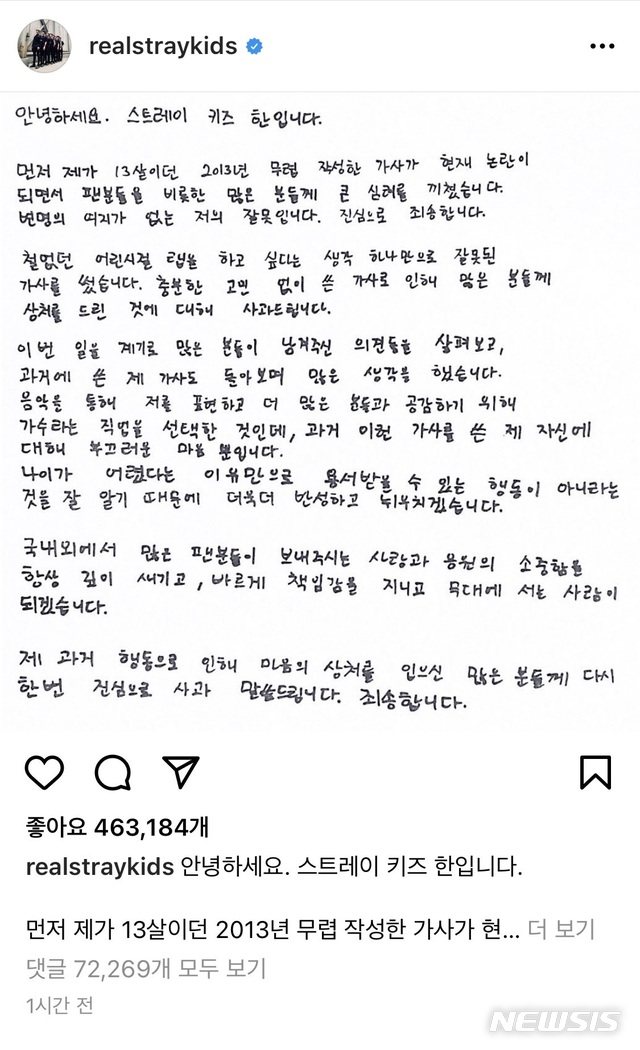 realstraykids
안녕하세요. 스트레이 키즈 한입니다.
먼저 제가 13살이던 2013년 무렵 작성한 가사가 현재 논란이
되면서 팬분들을 비롯한 많은 분들께 큰 심려를 끼쳤습니다.
변명의 여지가 없는 저의 잘못입니다. 진심으로 죄송합니다.
철없던 어린시절 랩을 하고 싶다는 생각 하나만으로 잘못된
가사를 썼습니다. 충분한 고민 없이 쓴 가사로 인해 많은 분들께
상처를 드린 것에 대해 사과드립니다.
이번 일을 계기로 많은 분들이 남겨주신 의견들을 살펴보고,
과거에 쓴 제 가사도 돌아보며 많은 생각을 했습니다.
음악을 통해 저를 표현하고 더 많은 분들과 공감하기 위해
가수라는 직업을 선택한 것인데, 과거 이런 가사를 쓴 제 자신에
대해 부끄러운 마음 뿐입니다.
나이가 어렸다는 이유만으로 용서받을 수 있는 행동이 아니라는
것을 잘 알기 때문에 더욱더 반성하고 뉘우치겠습니다.
국내외에서 많은 팬분들이 보내주시는 사랑과 응원의 소중함을
항상 깊이 새기고, 바르게 책임감을 지니고 무대에 서는 사람이
되겠습니다.
제 과거 행동으로 인해 마음의 상처를 입으신 많은 분들께 다시
한번 진심으로 사과 말씀드립니다. 죄송합니다.
좋아요 463,184개
realstraykids 안녕하세요. 스트레이 키즈 한입니다.
먼저 제가 13살이던 2013년 무렵 작성한 가사가 현... 더 보기
댓글 72,269개 모두 보기
1시간 전
NEWSIS